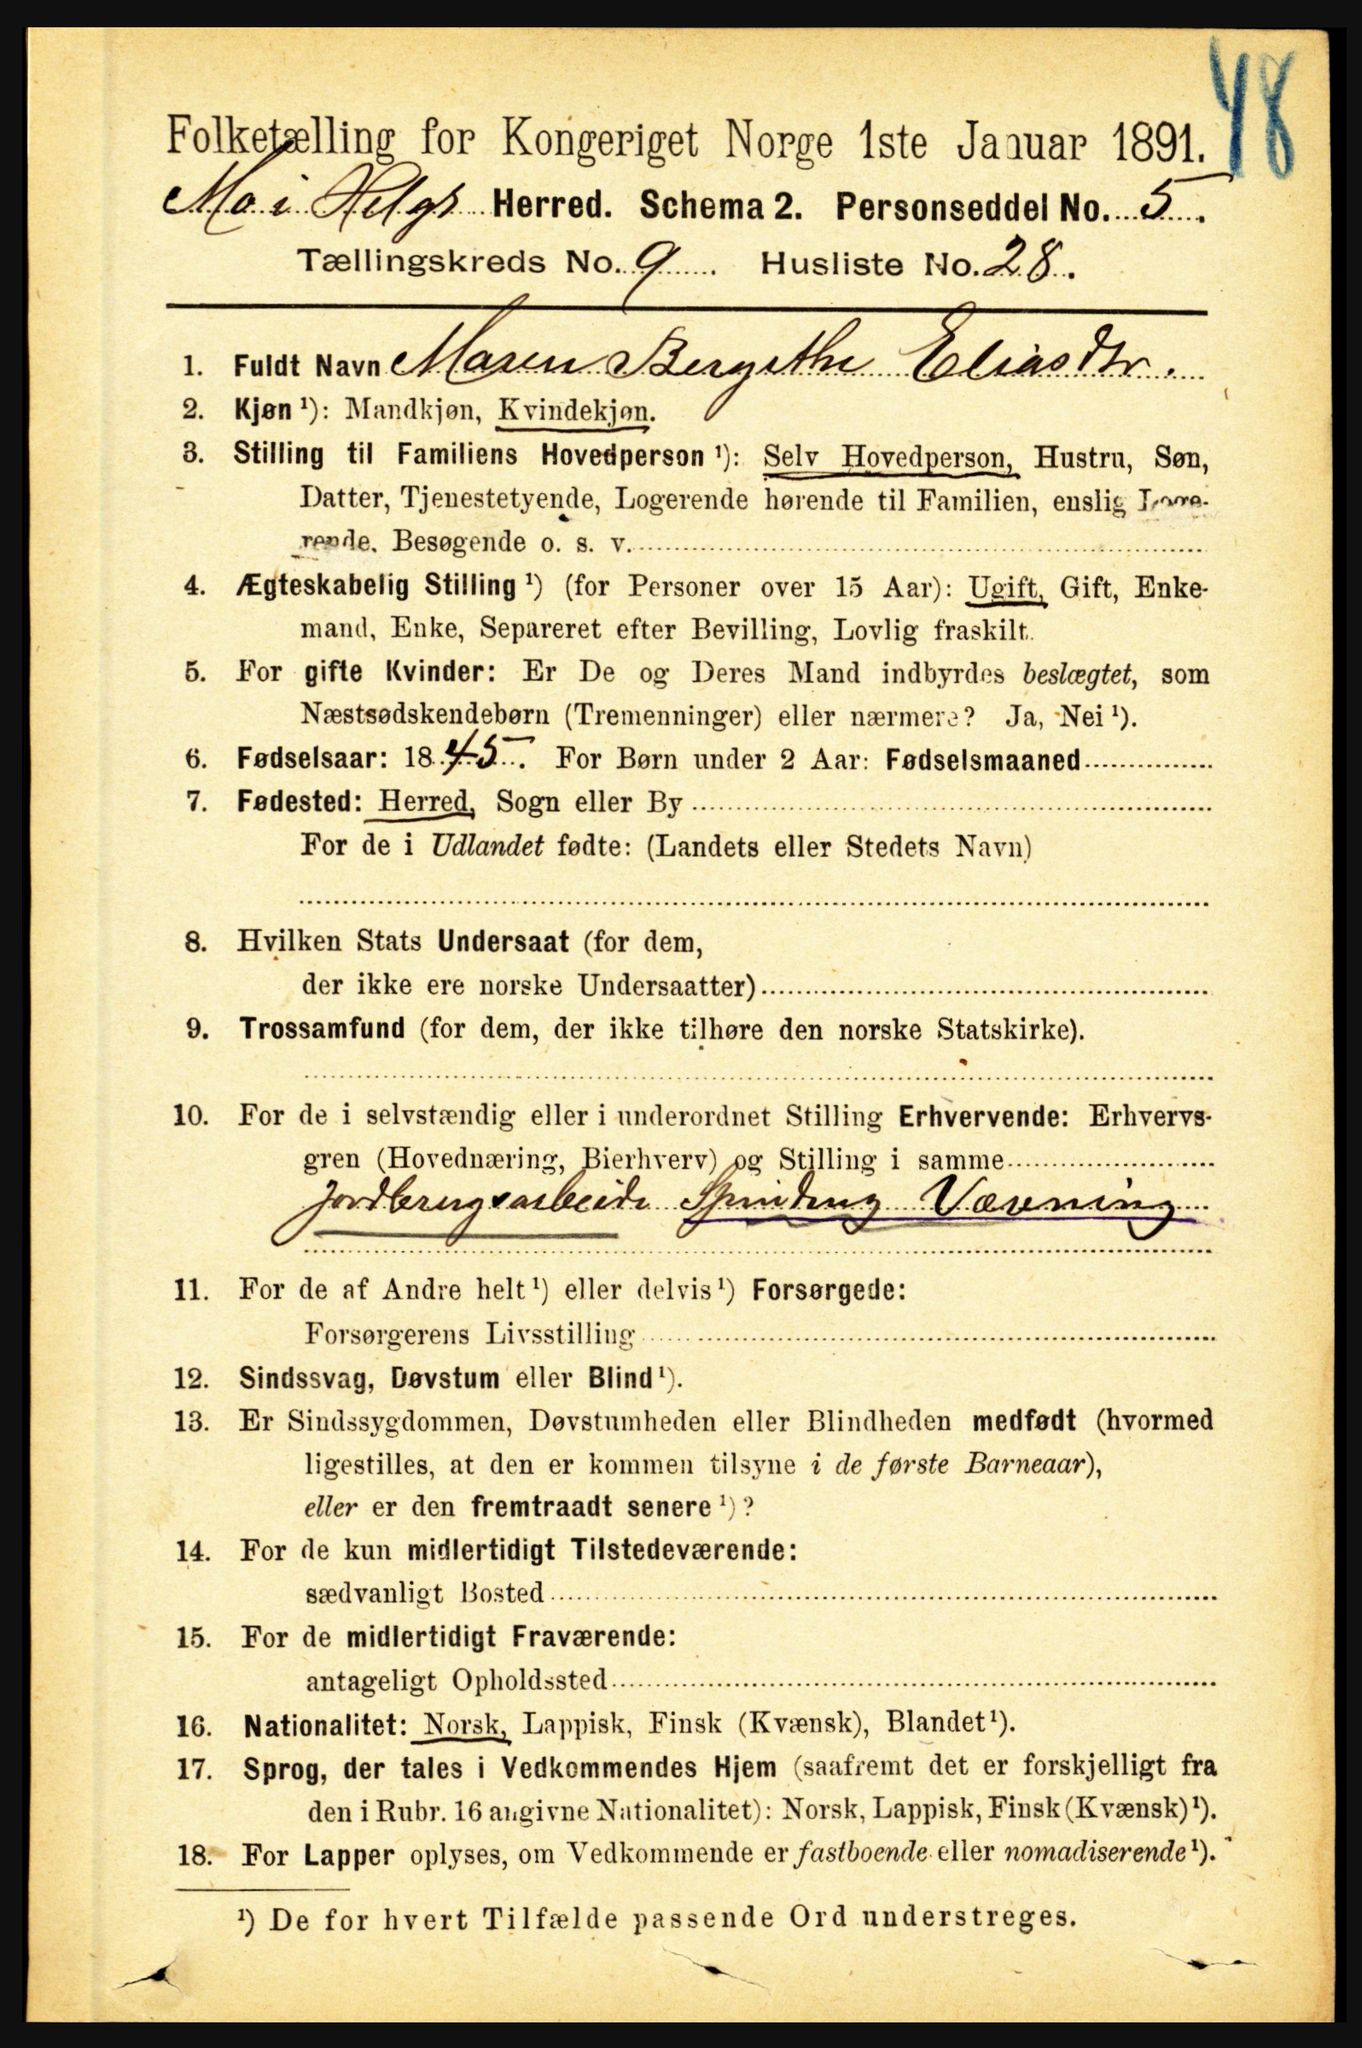 48
Folketælling for Kongeriget Norge 1ste Januar 1891.
Mo i Helgs Herred. Schema 2. Personseddel No. 5.
Tællingskreds No. 9 Husliste No. 28.
1. Fuldt Navn Maren Bergithe Eliasdtr.
2. Kjøn ¹): Mandkjøn, Kvindekjøn.
3. Stilling til Familiens Hovedperson ¹): Selv Hovedperson, Hustru, Søn,
Datter, Tjenestetyende, Logerende hørende til Familien, enslig Loge-
rende, Besøgende o. s. v.
4. Ægteskabelig Stilling ¹) (for Personer over 15 Aar): Ugift, Gift, Enke-
mand, Enke, Separeret efter Bevilling, Lovlig fraskilt.
5. For gifte Kvinder: Er De og Deres Mand indbyrdes beslægtet, som
Næstsødskendebørn (Tremenninger) eller nærmere? Ja, Nei ¹).
6. Fødselsaar: 1845. For Børn under 2 Aar: Fødselsmaaned
7. Fødested: Herred, Sogn eller By
For de i Udlandet fødte: (Landets eller Stedets Navn)
8. Hvilken Stats Undersaat (for dem,
der ikke ere norske Undersaatter)
9. Trossamfund (for dem, der ikke tilhøre den norske Statskirke).
10. For de i selvstændig eller i underordnet Stilling Erhvervende: Erhvervs-
gren (Hovednæring, Bierhverv) og Stilling i samme
Jordbrugsarbeide Spinding Væwning
11. For de af Andre helt ¹) eller delvis ¹) Forsørgede:
Forsørgerens Livsstilling
12. Sindssvag, Døvstum eller Blind ¹).
13. Er Sindssygdommen, Døvstumheden eller Blindheden medfødt (hvormed
ligestilles, at den er kommen tilsyne i de første Barneaar),
eller er den fremtraadt senere ¹)?
14. For de kun midlertidigt Tilstedeværende:
sædvanligt Bosted
15. For de midlertidigt Fraværende:
antageligt Opholdssted
16. Nationalitet: Norsk, Lappisk, Finsk (Kvænsk), Blandet ¹).
17. Sprog, der tales i Vedkommendes Hjem (saafremt det er forskjelligt fra
den i Rubr. 16 angivne Nationalitet): Norsk, Lappisk, Finsk (Kvænsk) ¹).
18. For Lapper oplyses, om Vedkommende er fastboende eller nomadiserende ¹).
¹) De for hvert Tilfælde passende Ord understreges.